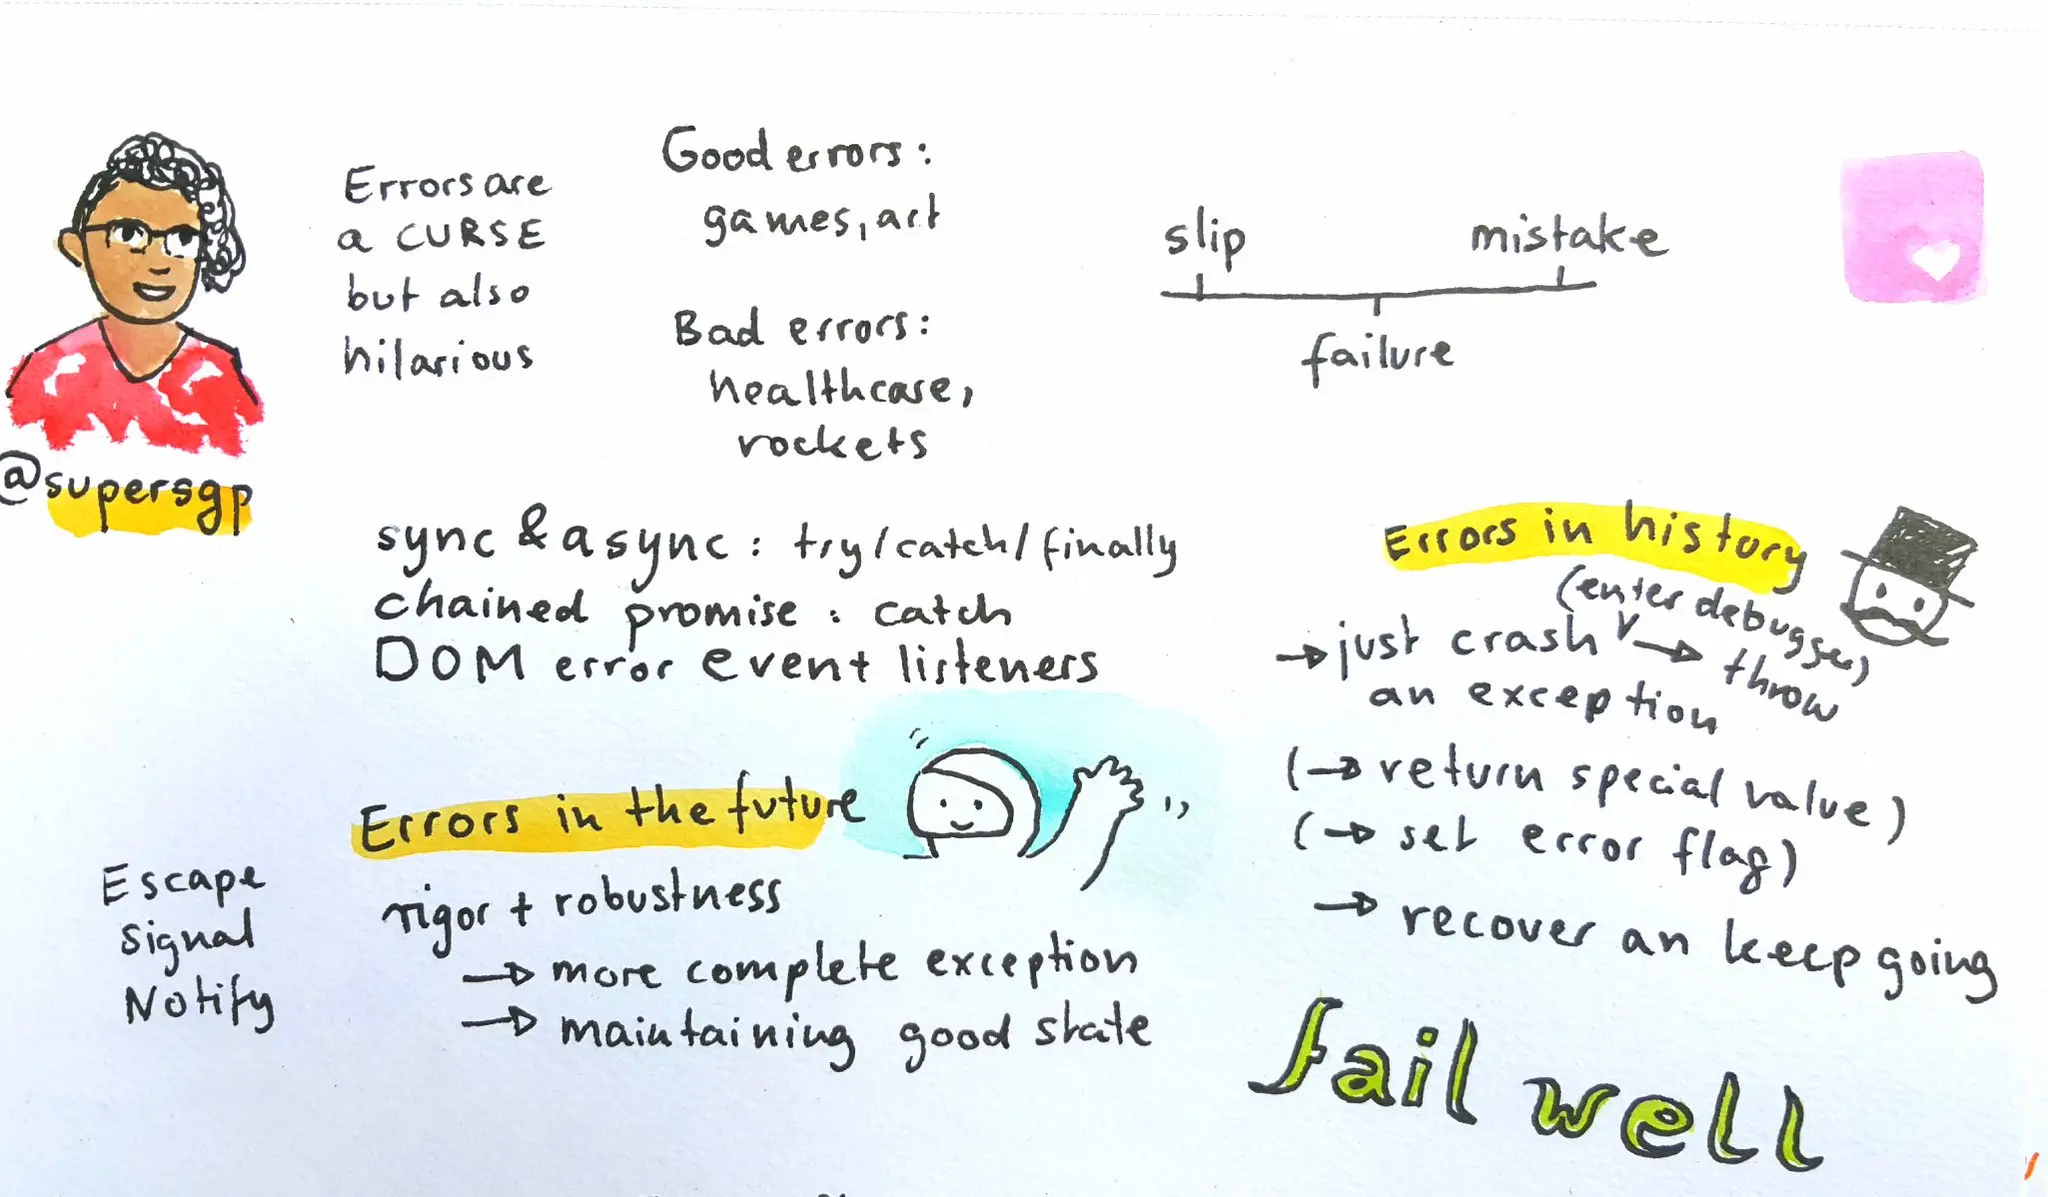 Errors are
a CURSE
but also
hilarious
@supersgp
Good errors:
games, art
Bad errors:
healthcare,
rockets
slip
mistake
failure
sync & async: try/catch/finally
chained promise: catch
DOM error event listeners
Errors in history
(enter debugger)
→ just crash → throw
an exception
(→ return special value)
(→ set error flag)
→ recover an keep going
Errors in the future
rigor + robustness
→ more complete exception
→ maintaining good state
Escape
Signal
Notify
fail well